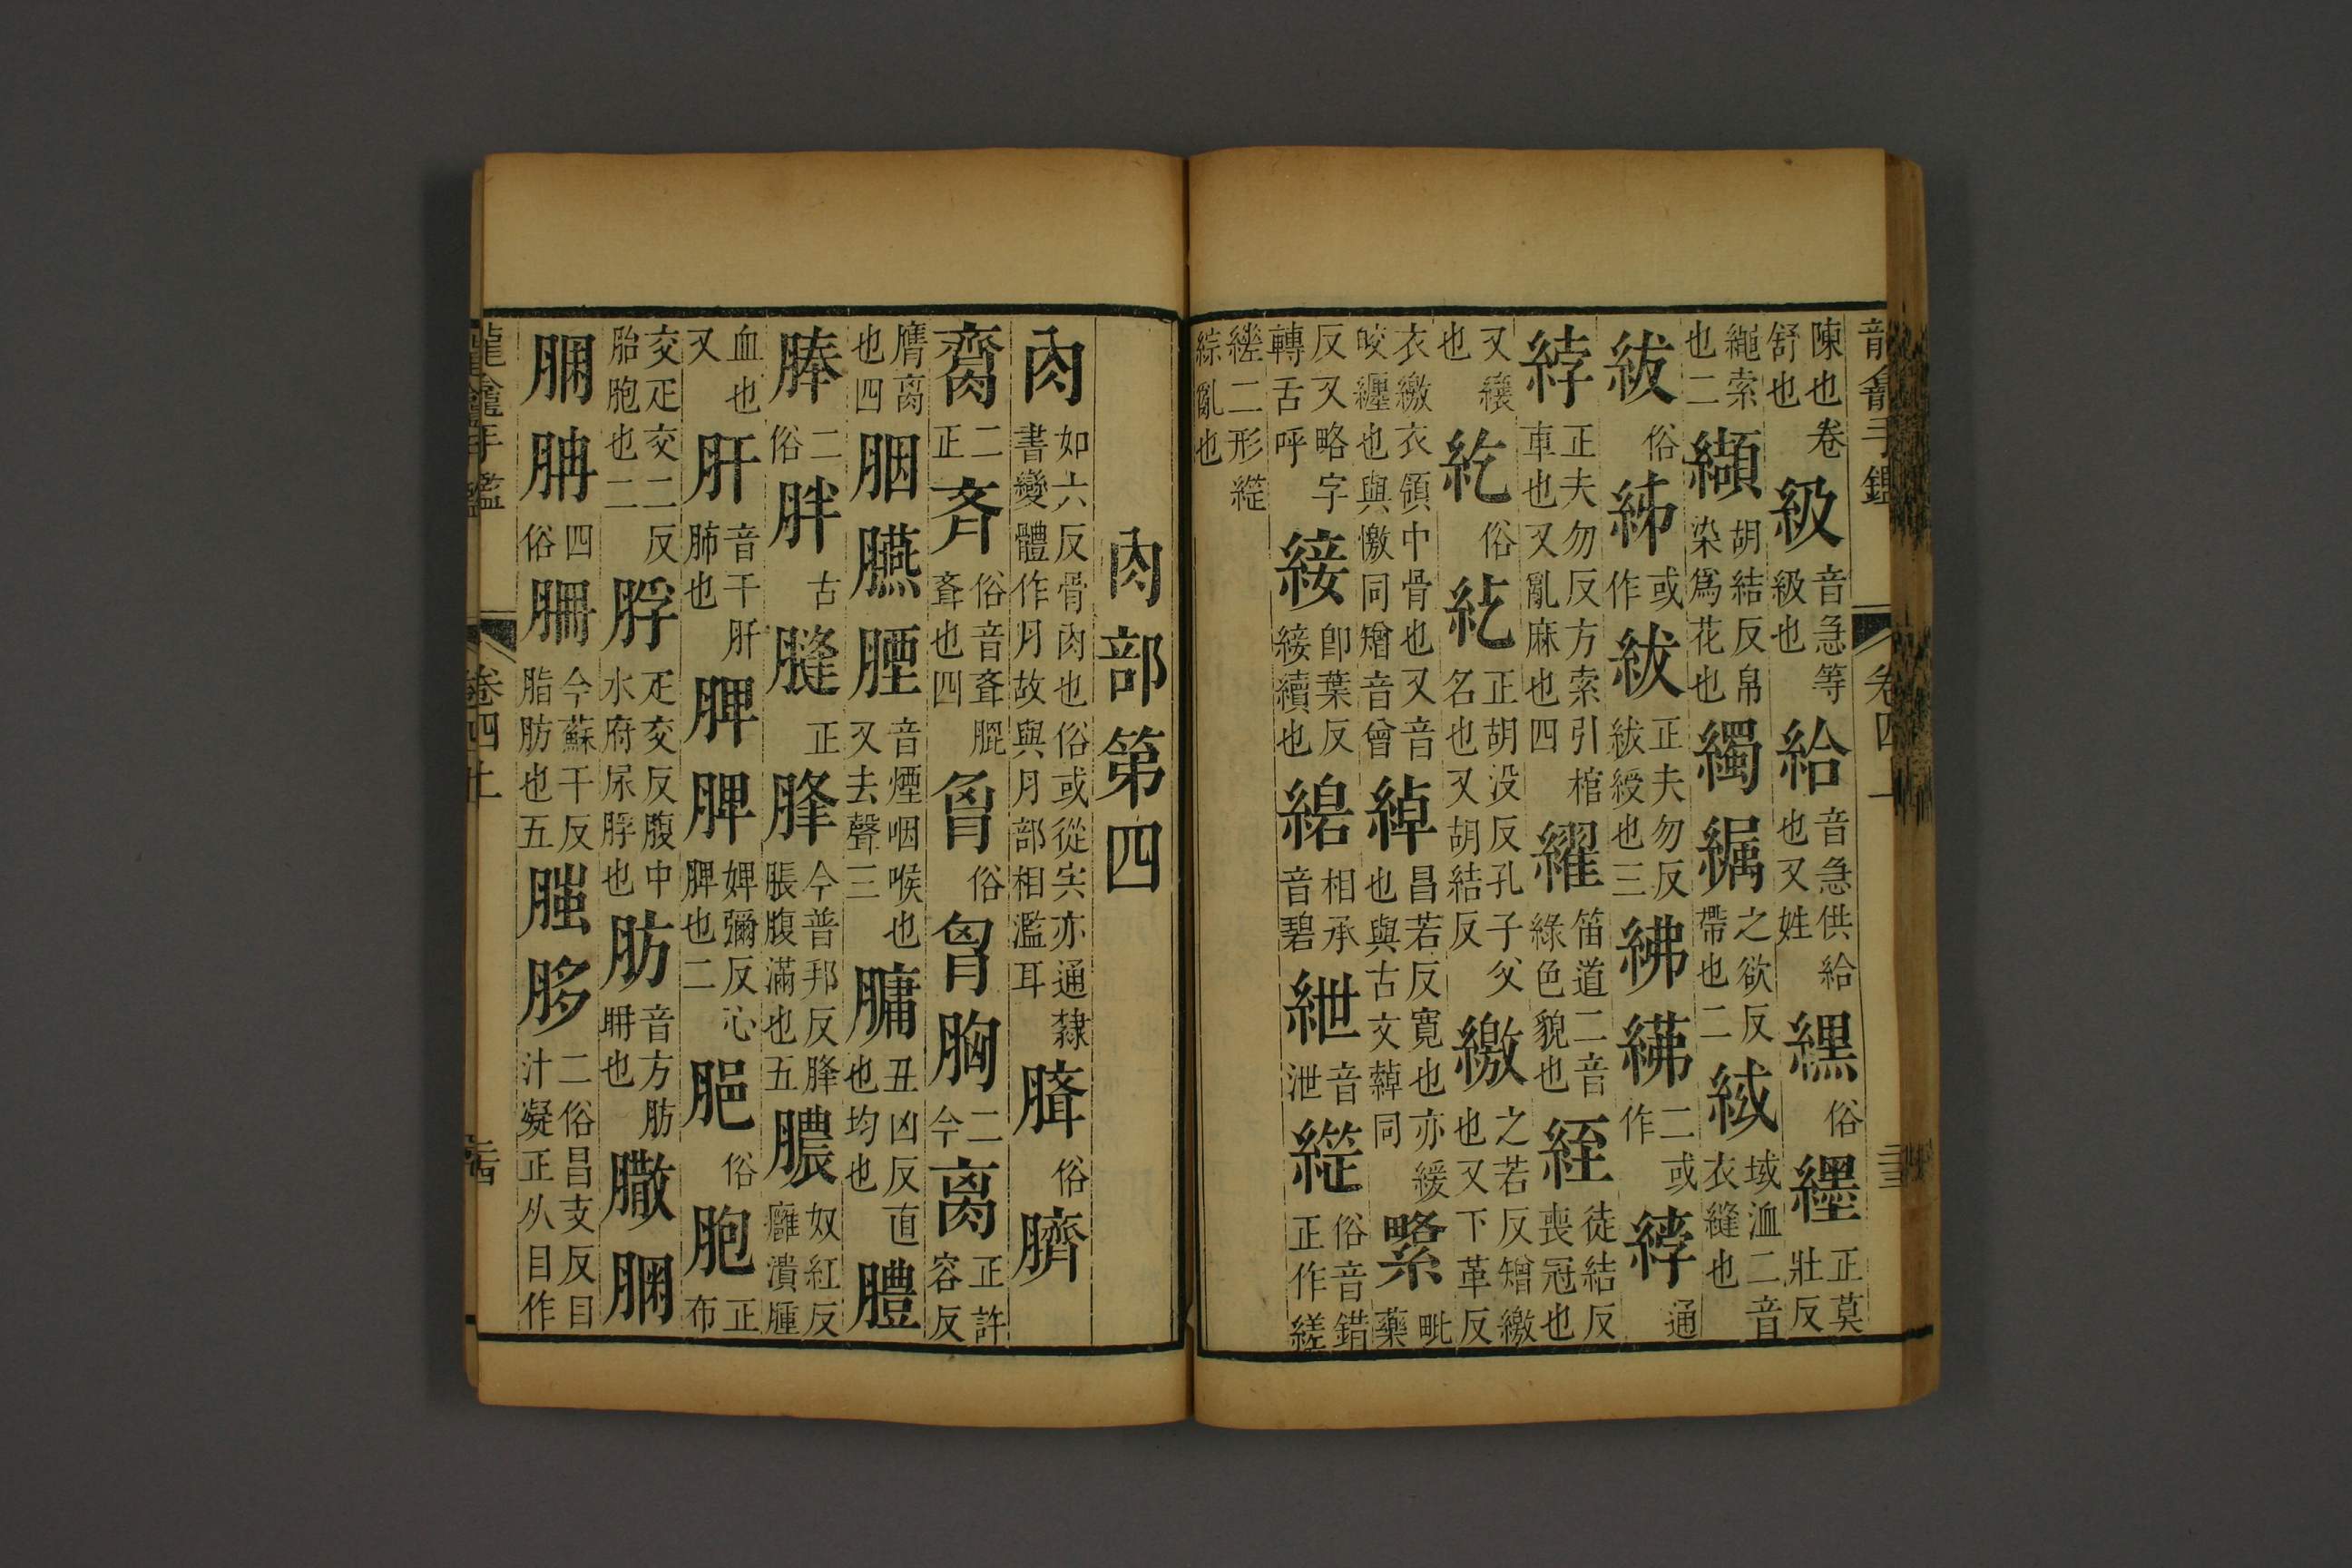 陳也卷舒也級音急等級也給音急供給也又姓縲俗纆正莫壯反
繩索也二纈胡結反帛染爲花也襡䌫之欲反帶也二緎域洫二音衣縫也
紱俗綈或作紱正夫勿反紱綬也三紼綍二或作綍通
綍正夫勿反方索引棺車也又亂麻也四糴笛道二音綠色貌也絰徒結反喪冠也
又纕也紇俗紇正胡没反孔子父名也又胡結反繳之若反矰繳也又下革反
衣繳衣領中骨也又音皎纏也與憿同矰音曾綽昌若反寛也亦緩也與古文繛同䌛毗藥
反又略字轉舌呼緁即葉反緁續也䋻相承音碧紲音泄縒俗音錯正作縒
縒二形縒綜亂也
肉部第四
肉如六反骨肉也俗或從宍亦通隸書變體作月故與月部相濫耳臍俗臍
臠二正斉俗音齊齊也四胷俗胷胸二今离正許容反
膺离也四胭臙腰音煙咽喉也又去聲三膅丑凶反直也均也體
胮二俗胖古膖正胮今普邦反胮脹腹滿也五膿奴紅反癰潰腫
血也又肝音干肝肺也脾脾婢彌反心脾也二脃俗胞正布
交疋交二反胎胞也二脬疋交反腹中水府尿脬也肪音方肪𦙱也䐋
𦜗𦙱四俗𦙱今蘇干反脂肪也五䐛䏧二俗昌支反目汁凝正从目作
龍龕手鑑
卷四上